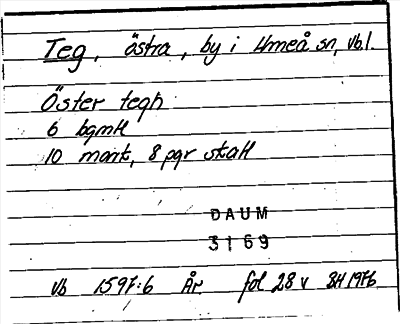 Teg, östra, by i Umeå sn, Vb.l.
Öster tegh
6 bgmH
10 mark, 8 pgr skaH
DAUM
3169
Vb 1597:6 År fol 28 v BH 1976